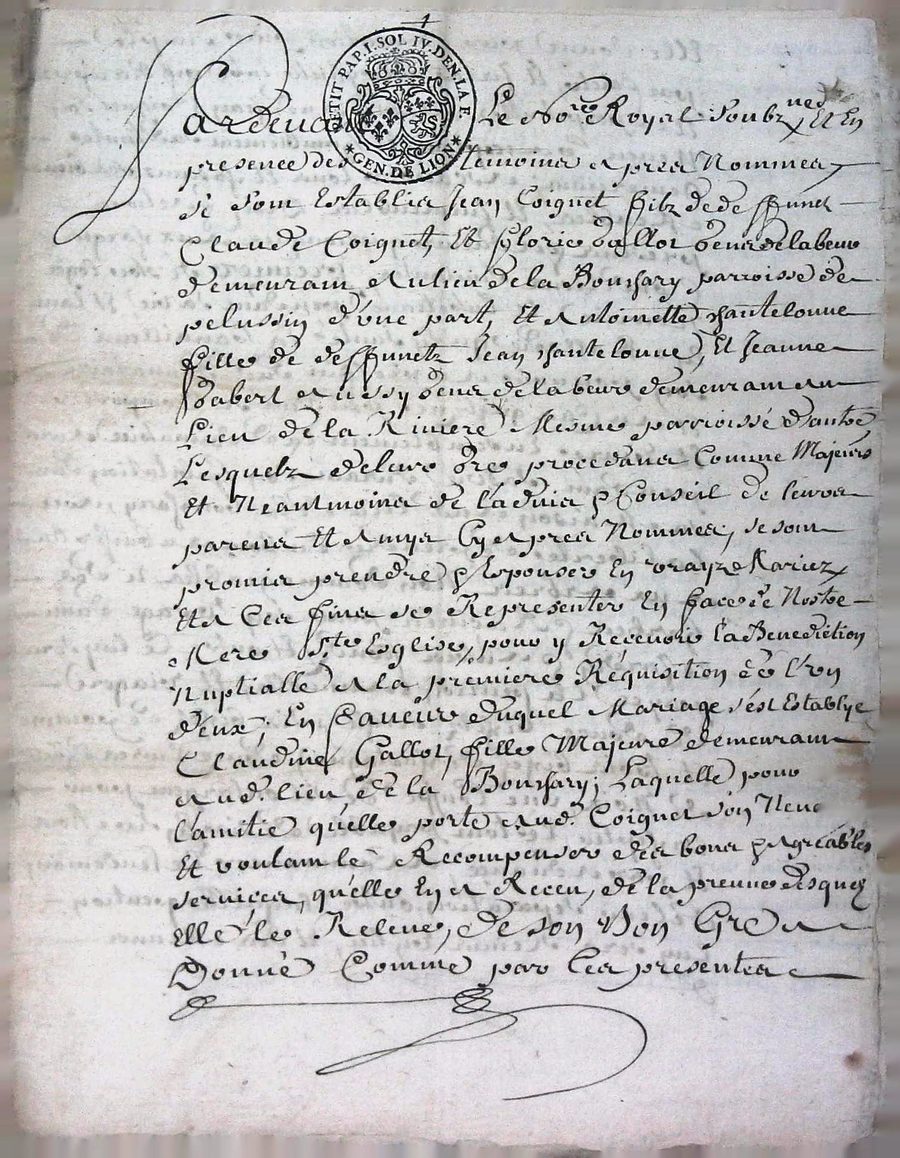 PETIT PAP. I. SOL IV. DEN. LA F
GEN. DE LION
Pardevant Le No.re Royal Soubz.nes Et En
presence des temoins apres Nommes
Se sont Establis Jean Coignet filz de deffunct
Claude Coignet, Et florie Gallot Gens de labeur
demeurant au lieu de la Bonsary parroisse de
pelussin d'une part, Et Antoinette Chantelonne
fille de deffunctz Jean Chantelonne, Et Jeanne
Gabert aussy Gens de labeur demeurant au
Lieu de la Riviere Mesme parroisse d'autre
Lesquelz de leur Gre procedans Comme Majeurs
Et Neantmoins de l'advis & Conseil de leurs
parens Et Amys Cy apres Nommes, se sont
promis prendre & Espouser En vrays Mariez
Et a Ces fins se Representer En face de Nostre
Mere S.te Esglise, pour y Recevoir la Benediction
Nuptialle a la premiere Requisition de l'un
d'eux; En faveur duquel Mariage s'est Establye
Claudine Gallot, fille Majeure demeurant
aud. lieu de la Bonsary; Laquelle pour
l'amitie qu'elle porte aud. Coignet son Neveu
Et voulant le Recompenser des bons & agreables
services, qu'elle En a Receu, de la preuve desquelz
Elle le Releve, de son Bon Gre a
Donné Comme par Ces presentes